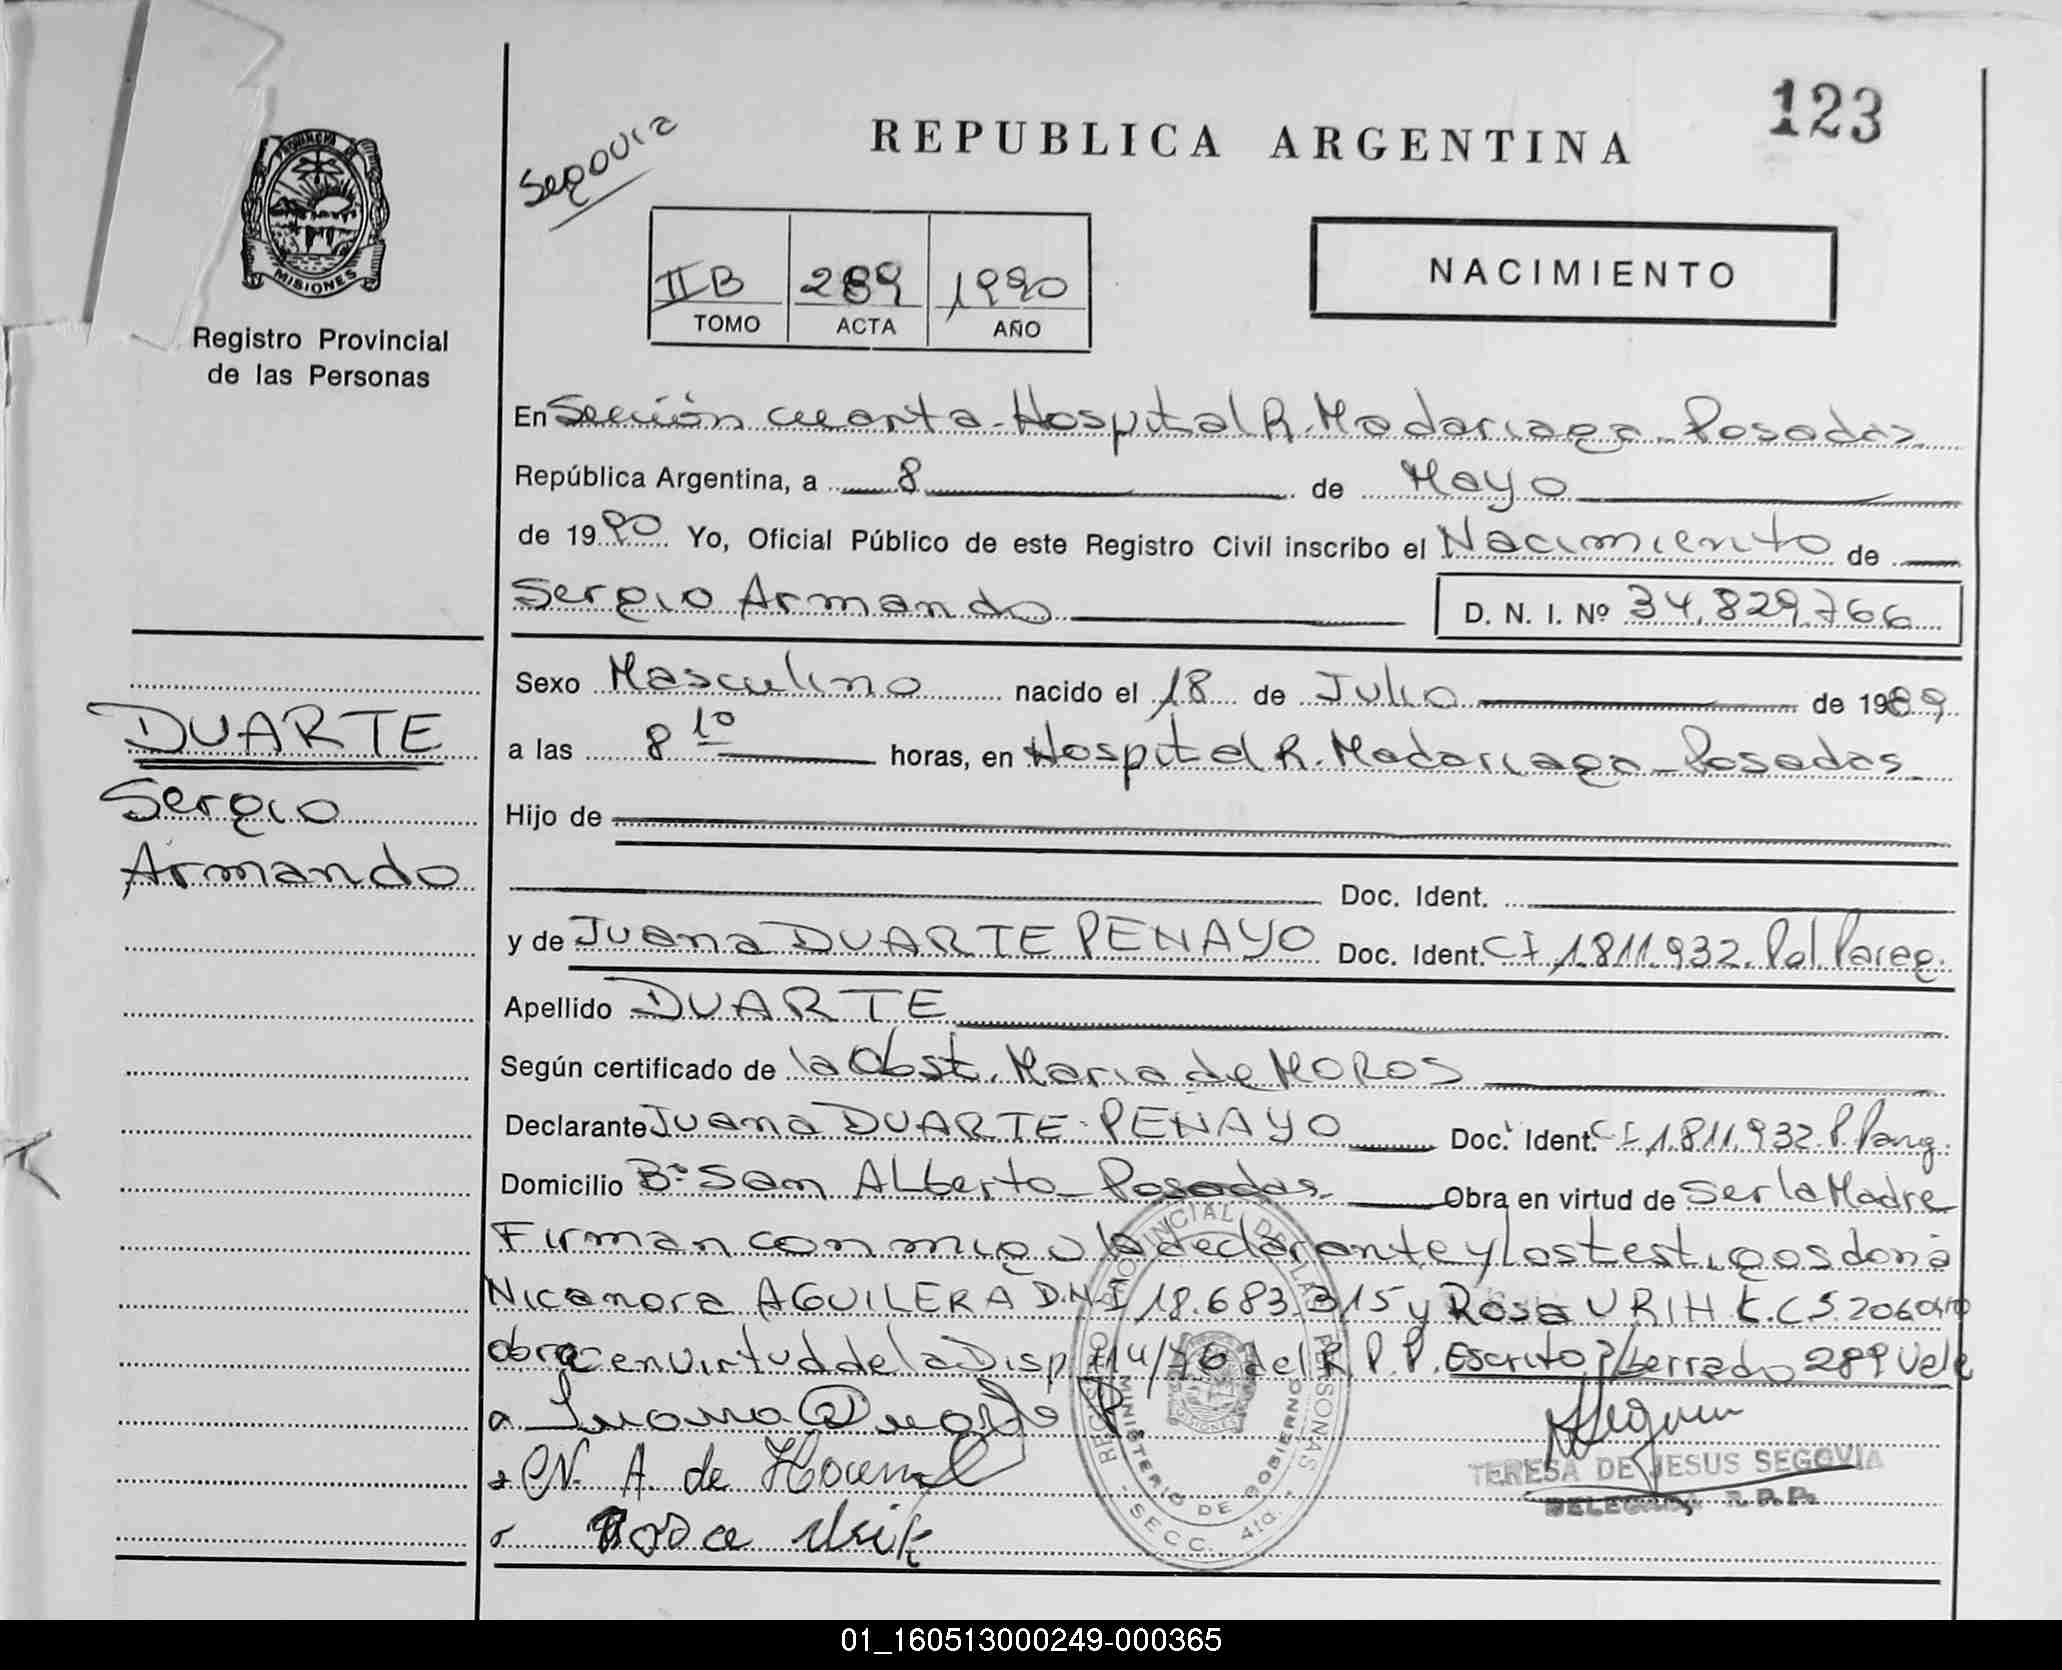 123
REPUBLICA ARGENTINA
Segovia
PROVINCIA DE
MISIONES
Registro Provincial
de las Personas
IIB 289 1990
TOMO ACTA AÑO
NACIMIENTO
En Sección cuarta - Hospital R. Madariaga - Posadas
República Argentina, a 8 de Mayo
de 1990 Yo, Oficial Público de este Registro Civil inscribo el Nacimiento de
Sergio Armando D. N. I. Nº 34.829.766
Sexo Masculino nacido el 18 de Julio de 1989
DUARTE
Sergio
Armando
a las 8 10 horas, en Hospital R. Madariaga - Posadas
Hijo de
Doc. Ident.
y de Juana DUARTE PENAYO Doc. Ident. CI 1.811.932. Pol. Parag.
Apellido DUARTE
Según certificado de la Obst. Maria de MOROS
Declarante Juana DUARTE PENAYO Doc. Ident. CI 1.811.932 P. Parag.
Domicilio Bº San Alberto - Posadas Obra en virtud de Ser la Madre
Firman conmigo la declarante y los testigos doña
Nicanora AGUILERA D.N.I 18.683.315 y Rosa URIH
obra en virtud de la Disp. 214/76 del R.P.P. Escrito s/berrado 289 Vale
Juana Duarte P
N. A. de
Rosa Urih
REGISTRO PROVINCIAL DE LAS PERSONAS
MINISTERIO DE GOBIERNO
MISIONES
- SECC. 4ta. -
TERESA DE JESUS SEGOVIA
DELEGADA R.P.P.
01_160513000249-000365